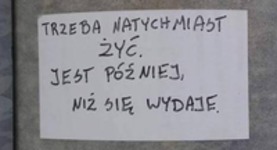 TRZEBA NATYCHMIAST
ŻYĆ.
JEST PÓŹNIEJ,
NIŻ SIĘ WYDAJE.